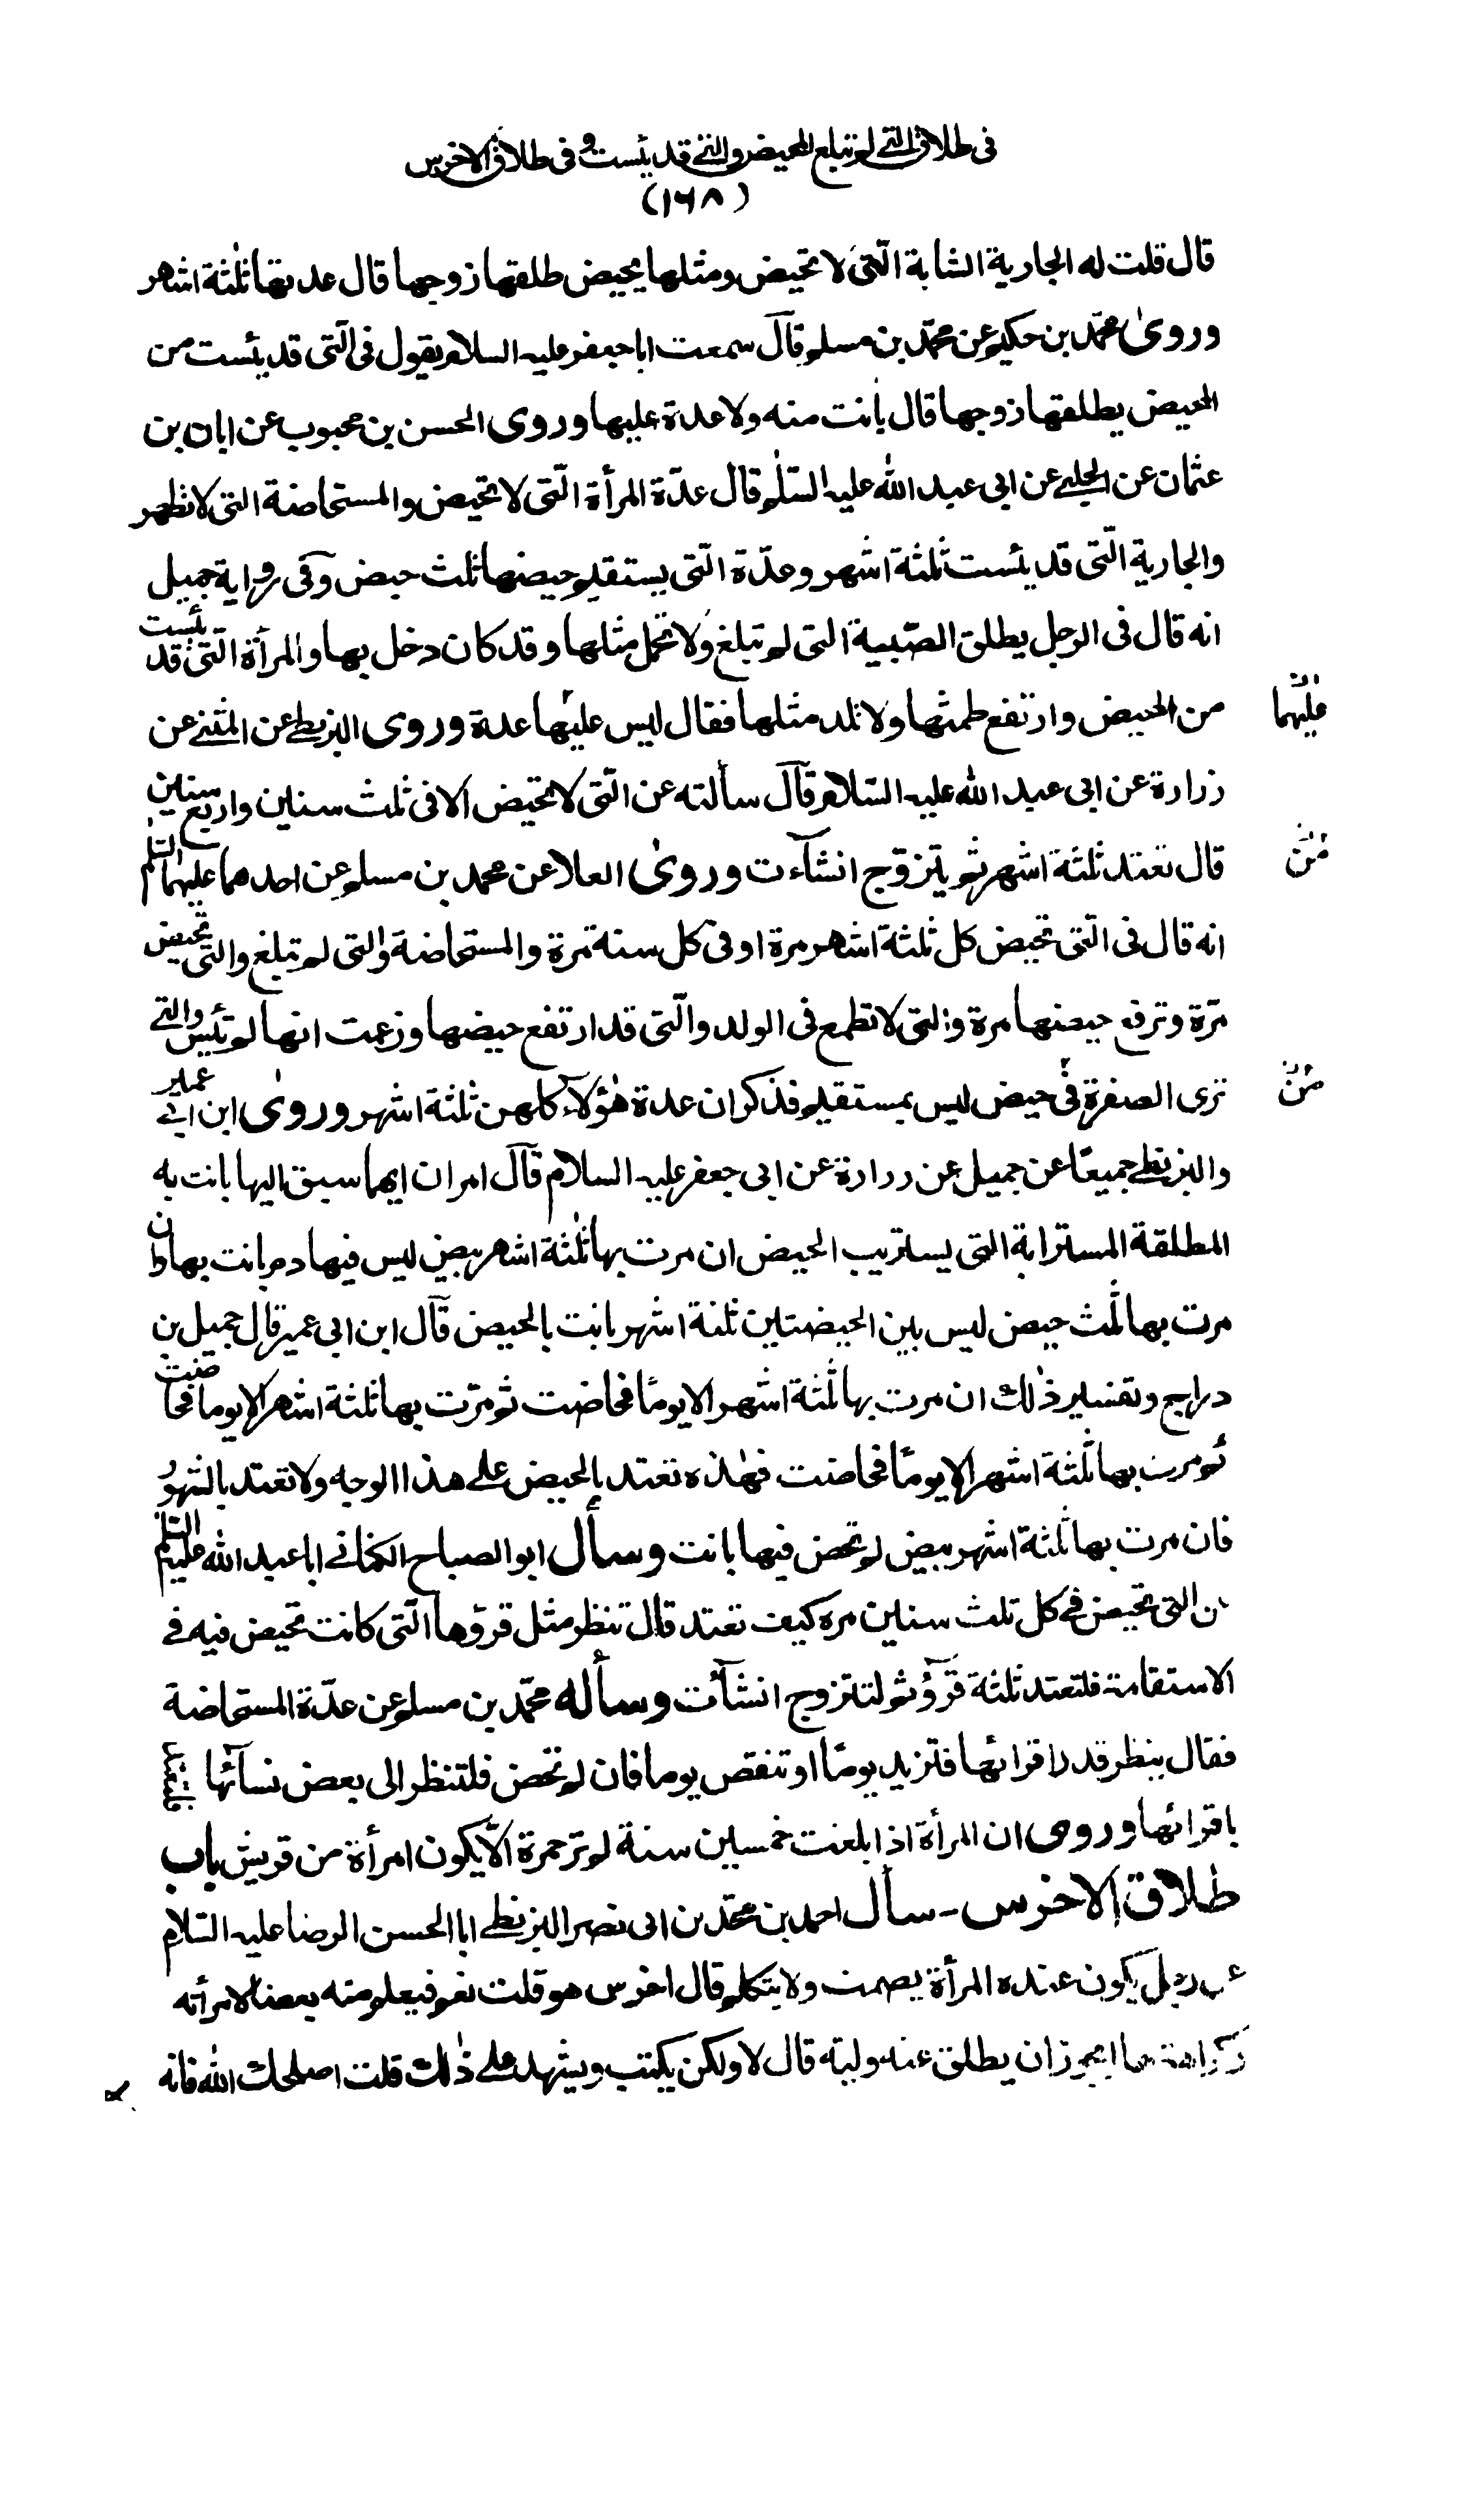 فى طلاق التى لم تبلغ المحيض والتى قد يئست و فى طلاق الاخرس
(١٦٨)
قال قلت له الجارية الشابة الّتى لا تحيض ومثلها يحيض طلقها زوجها قال عدتها ثلثة اشهر
وروىٰ محمّد بن حكيم عن محمّد بن مسلم قال سمعت اباجعفر عليه السلام يقول فى الّتى قد يئست من
المحيض يطلقها زوجها قال بانت منه ولا عدة عليها وروى الحسن بن محبوب عن ابان بن
عثمان عن الحلبى عن ابى عبد الله عليه السّلم قال عدّة المرأة الّتى لا تحيض والمستحاضة التى لا تطهر
والجارية الّتى قد يئست ثلثة اشهر وعدّة الّتى يستقيم حيضها ثلث حيض وفى رواية جميل
انه قال فى الرجل يطلق الصّبية التى لم تبلغ ولا تحمل مثلها وقد كان دخل بها والمرأة الّتى قد يئست
من المحيض وارتفع طمثها ولا تلد مثلها فقال ليس عليها عدة وروى البزنطى عن المثنى عن
عليهما
زرارة عن ابى عبد الله عليه السّلام قال سألته عن الّتى لا تحيض الا فى ثلث سنين واربع سنين
قال تعتد ثلثة اشهر ثم يتزوّج انشآءت وروىٰ العلا عن محمد بن مسلم عن احدهما عليهما السّلم
انه قال فى الّتى تحيض كل ثلثة اشهر مرة او فى كل سنة مرة والمستحاضة والتى لم تبلغ والتى تحيض
مرّة وترفع حيضها مرة والتى لا تطمع فى الولد والّتى قد ارتفع حيضها وزعمت انها لم تيئس والتى
ترى الصفرة فى حيض ليس بمستقيم فذكر ان عدة هؤلآء كلهن ثلثة اشهر وروىٰ ابن ابى عمير
من
والبزنطى جميعًا عن جميل عن زرارة عن ابى جعفر عليه السلام قال امران ايهما سبق اليها بانت به
المطلقة المسترابة التى يستريب الحيض ان مرت بها ثلثة اشهر بيض ليس فيها دم بانت بها وان
مرت بها ثلث حيض ليس بين الحيضتين ثلثة اشهر بانت بالحيض قال ابن ابى عمير قال جميل بن
دراج وتفسير ذٰلك ان مرت بها ثلثة اشهر الا يومًا فحاضت ثم مرّت بها ثلثة اشهر الا يوما فحاضت
ثم مرت بها ثلثة اشهر الا يومًا فحاضت فهٰذه تعتد بالحيض على هذا الوجه ولا تعتد بالشهور
فان مرت بها ثلثة اشهر بيض لم تحض فيها بانت وسأل ابو الصباح الكنانى ابا عبد الله عليه السّلم
عن التى تحيض فى كل ثلث سنين مرة كيف تعتد قال تنظر مثل قرؤها الّتى كانت تحيض فيه فى
الاستقامة فلتعتد ثلثة قروٓء ثم لتتزوج انشآئت وسأله محمّد بن مسلم عن عدّة المستحاضة
فقال ينظر قدر اقرائها فتزيد يومًا او تنقص يوما فان لم تحض فلتنظر الى بعض نسآئها
باقرائها وروى ان المرأة اذا بلغت خمسين سنة لم تر حمرة الّا يكون امرأة من قريش باب
طلاق الاخرس - سأل احمد بن محمّد بن ابى نصر البزنطى ابا الحسن الرضا عليه السّلام
عن رجل يكون عنده المرأة يصمت ولا يتكلم قال اخرس هو قلت نعم فيعلم منه بعضا لامرأته
وكراهة لها ايجوز ان يطلق عنه وليه قال لا ولكن يكتب ويشهد على ذٰلك قلت اصلحك الله فانه